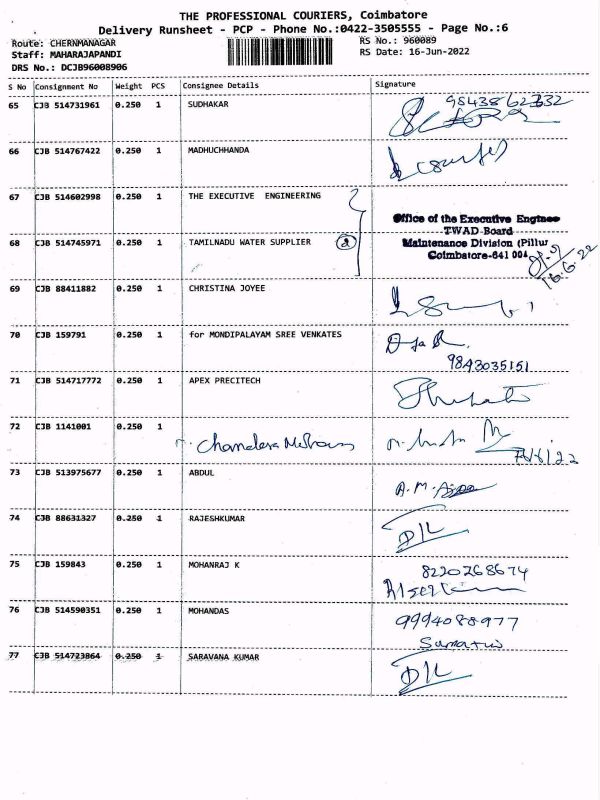 THE PROFESSIONAL COURIERS, Coimbatore
Delivery Runsheet - PCP - Phone No.:0422-3505555 - Page No.:6
Route: CHERNMANAGAR
RS No.: 960089
Staff: MAHARAJAPANDI
RS Date: 16-Jun-2022
DRS No.: DCJB96008906
S No Consignment No Weight PCS Consignee Details Signature
65 CJB 514731961 0.250 1 SUDHAKAR
66 CJB 514767422 0.250 1 MADHUCHHANDA
67 CJB 514602998 0.250 1 THE EXECUTIVE ENGINEERING
Office of the Executive Enginee
TWAD Board
68 CJB 514745971 0.250 1 TAMILNADU WATER SUPPLIER 2
Maintenance Division (Pillur
Coimbatore-641 004
16.6.22
69 CJB 88411882 0.250 1 CHRISTINA JOYEE
70 CJB 159791 0.250 1 for MONDIPALAYAM SREE VENKATES
9843035151
71 CJB 514717772 0.250 1 APEX PRECITECH
72 CJB 1141001 0.250 1
73 CJB 513975677 0.250 1 ABDUL
A.M.
74 CJB 88631327 0.250 1 RAJESHKUMAR
D/L
75 CJB 159843 0.250 1 MOHANRAJ K
8220268674
76 CJB 514590351 0.250 1 MOHANDAS
9994088977
77 CJB 514723864 0.250 1 SARAVANA KUMAR
D/L